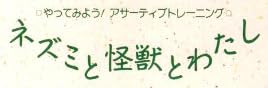 やってみよう! アサーティブトレーニング
ネズミと怪獣とわたし